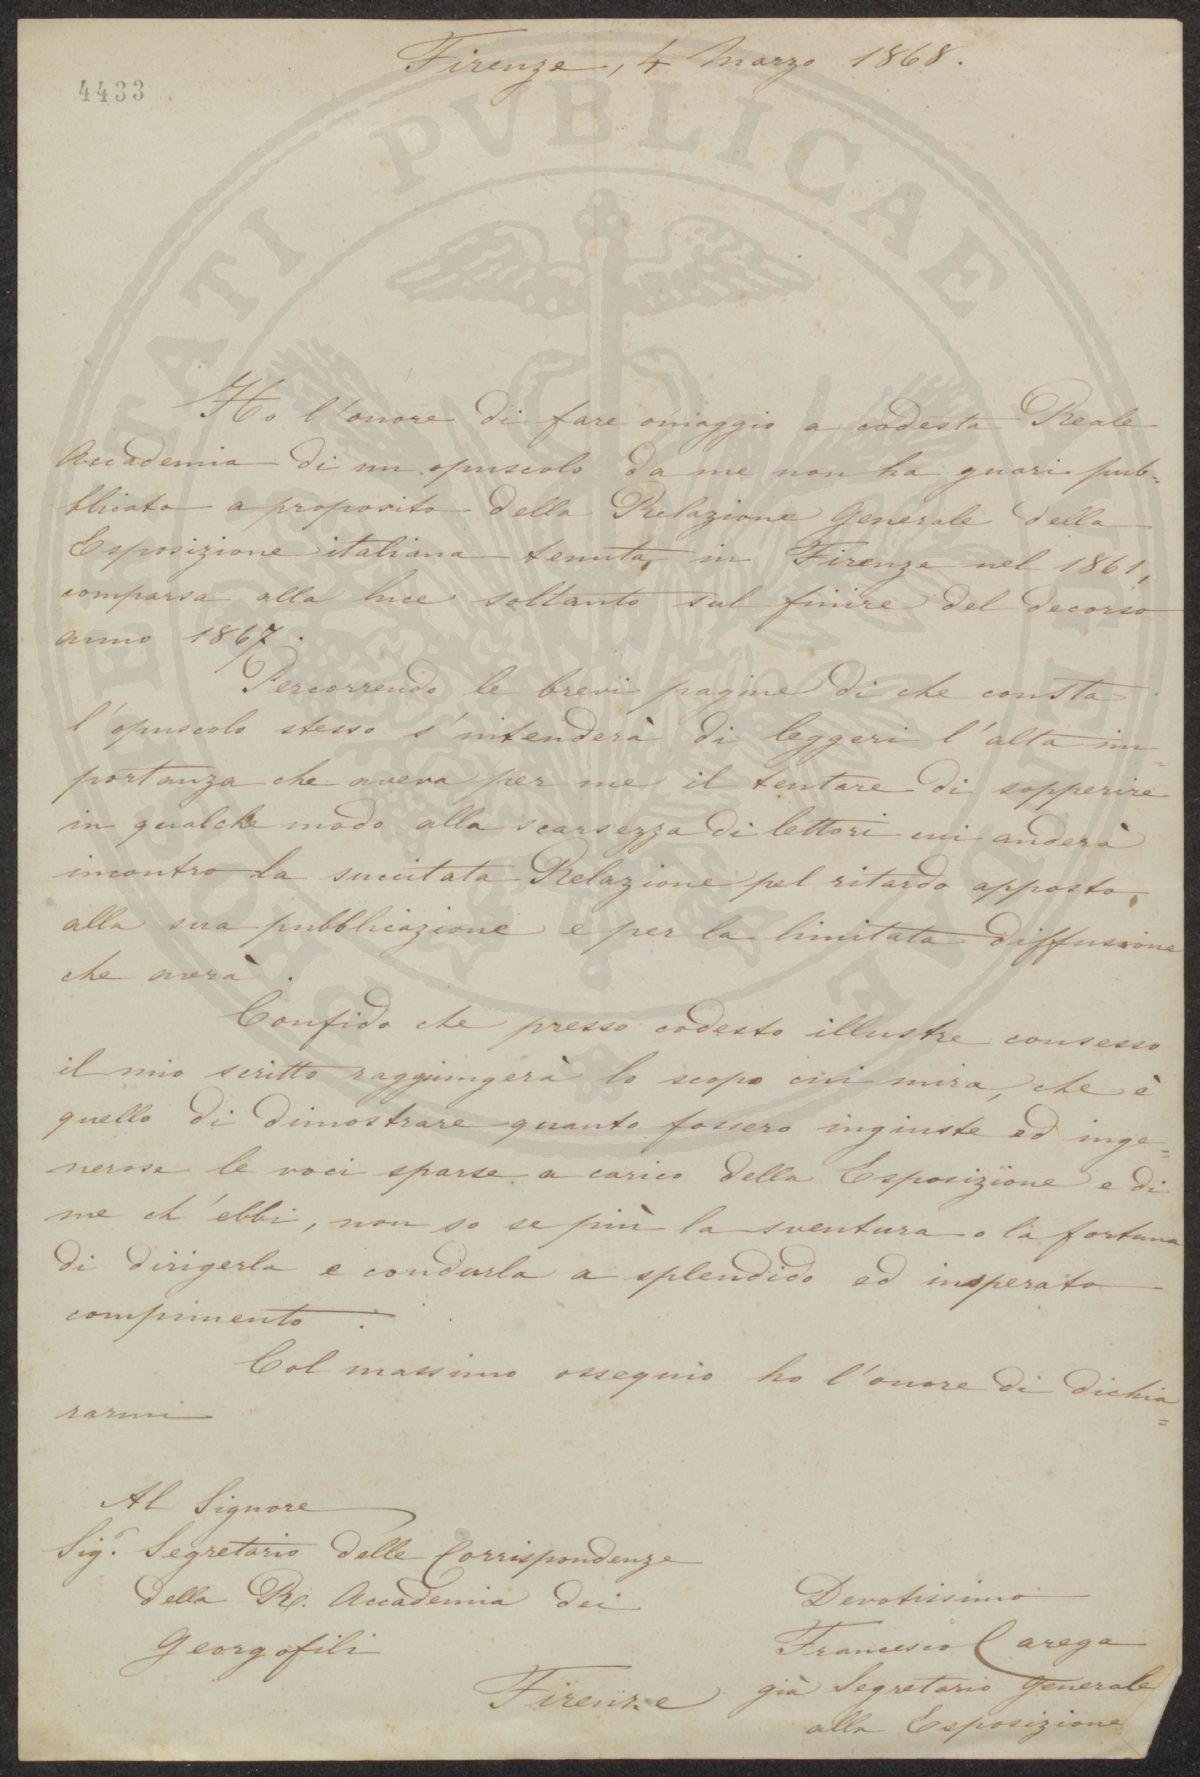 Firenze, 4 Marzo 1868.
4433
PVBLICAE
Ho l'onore di fare omaggio a codesta Reale
Accademia di un opuscolo da me non ha guari pub=
blicato a proposito della Relazione Generale della
Esposizione italiana tenuta, in Firenze nel 1861,
comparsa alla luce soltanto sul finire del decorso
anno 1867.
Percorrendo le brevi pagine di che consta
l'opuscolo stesso s'intenderà di leggeri l'alta im=
portanza che aveva per me il tentare di sopperire
in qualche modo alla scarsezza di lettori cui anderà
incontro la succitata Relazione pel ritardo apposto
alla sua pubblicazione e per la limitata diffusione
che averà.
Confido che presso codesto illustre consesso
il mio scritto raggiungerà lo scopo cui mira, che è
quello di dimostrare quanto fossero ingiuste ed inge=
nerose le voci sparse a carico della Esposizione e di
me ch'ebbi, non so se più la sventura o la fortuna
di dirigerla e condurla a splendido ed insperato
compimento.
Col massimo ossequio ho l'onore di dichia=
rarmi
Al Signore
Sig.r Segretario delle Corrispondenze
della R. Accademia dei
Georgofili
Firenze
Devotissimo
Francesco Carega
già Segretario Generale
alla Esposizione